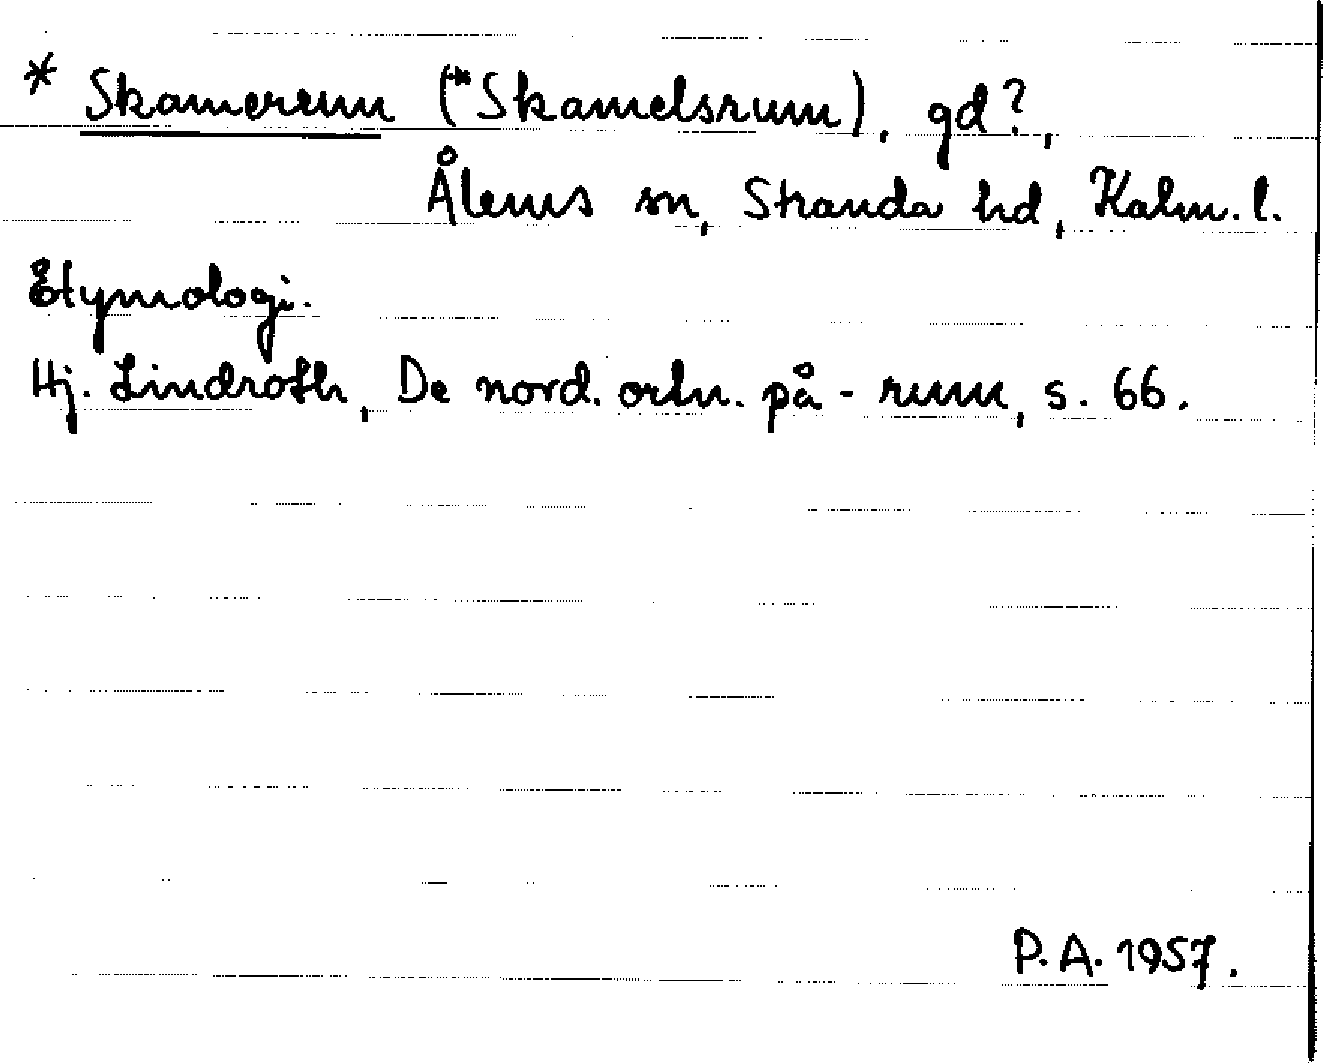 * Skamerum (*Skamelsrum), gd?,
Ålems sn, Stranda hd, Kalm. l.
Etymologi.
Hj. Lindroth, De nord. ortn. på - rum, s. 66.
P. A. 1957.